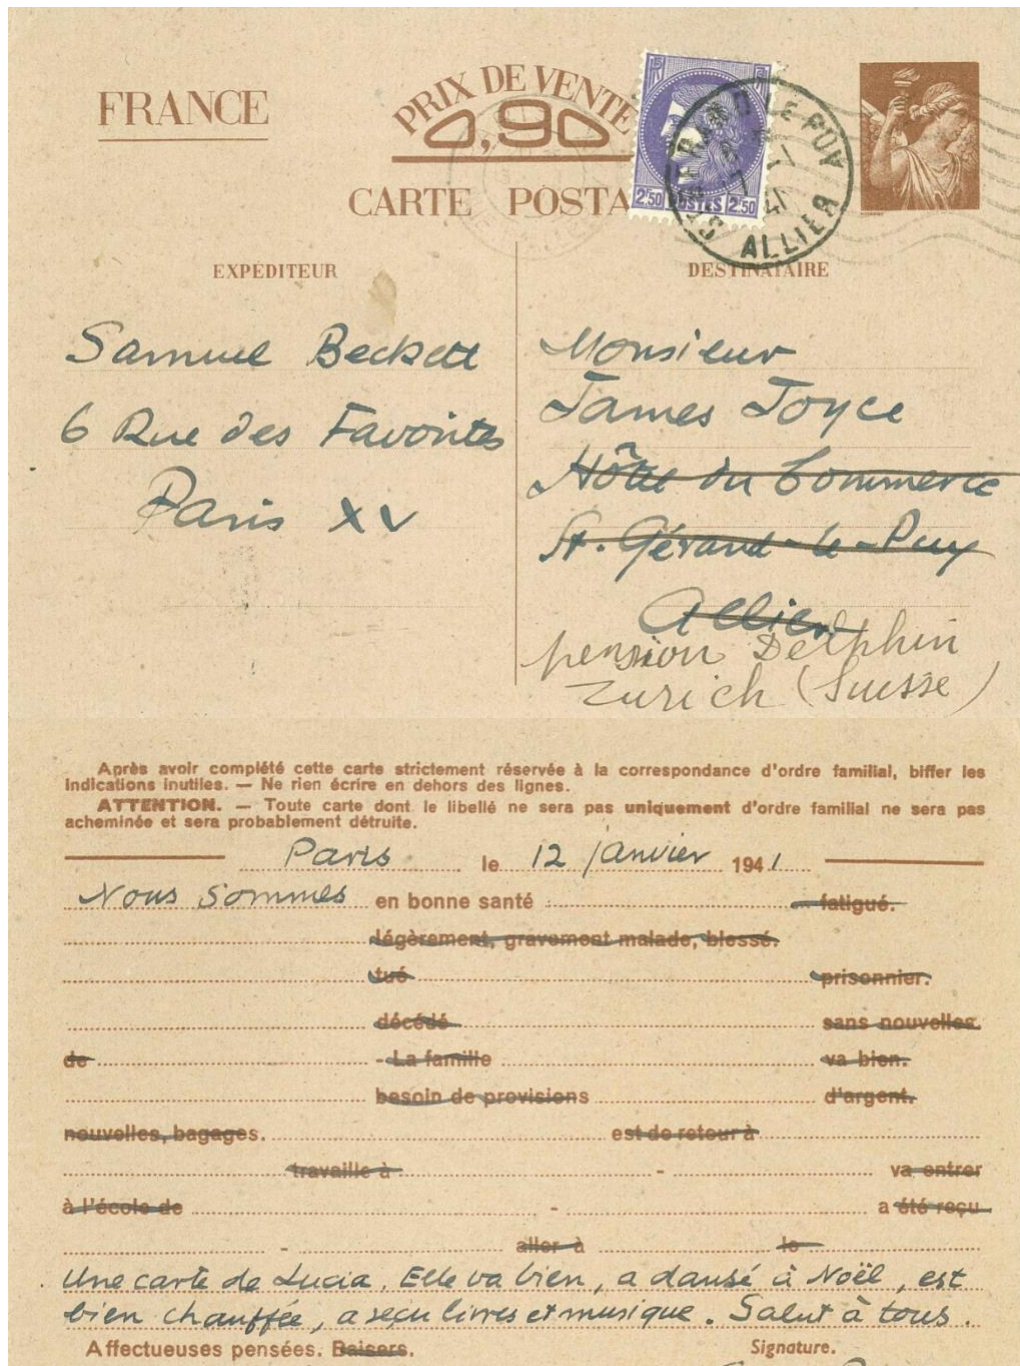 FRANCE
PRIX DE VENTE
0,90
CARTE POSTA
2,50 POSTES 2,50
ALLIER
EXPÉDITEUR
DESTINATAIRE
Samuel Beckett
6 Rue des Favorites
Paris XV
Monsieur
James Joyce
Hôtel du Commerce
St. Gérand-le-Puy
Allier
pension Delphin
Zurich (Suisse)
Après avoir complété cette carte strictement réservée à la correspondance d'ordre familial, biffer les
indications inutiles. — Ne rien écrire en dehors des lignes.
ATTENTION. — Toute carte dont le libellé ne sera pas uniquement d'ordre familial ne sera pas
acheminée et sera probablement détruite.
Paris le 12 janvier 1941
Nous sommes en bonne santé fatigué.
légèrement, gravement malade, blessé.
tué prisonnier.
décédé sans nouvelles
de - La famille va bien.
besoin de provisions d'argent.
nouvelles, bagages. est de retour à
travaille à - va entrer
à l'école de - a été reçu
- aller à le
Une carte de Lucia. Elle va bien, a dansé à Noël, est
bien chauffée, a reçu livres et musique. Salut à tous.
Affectueuses pensées. Baisers. Signature.